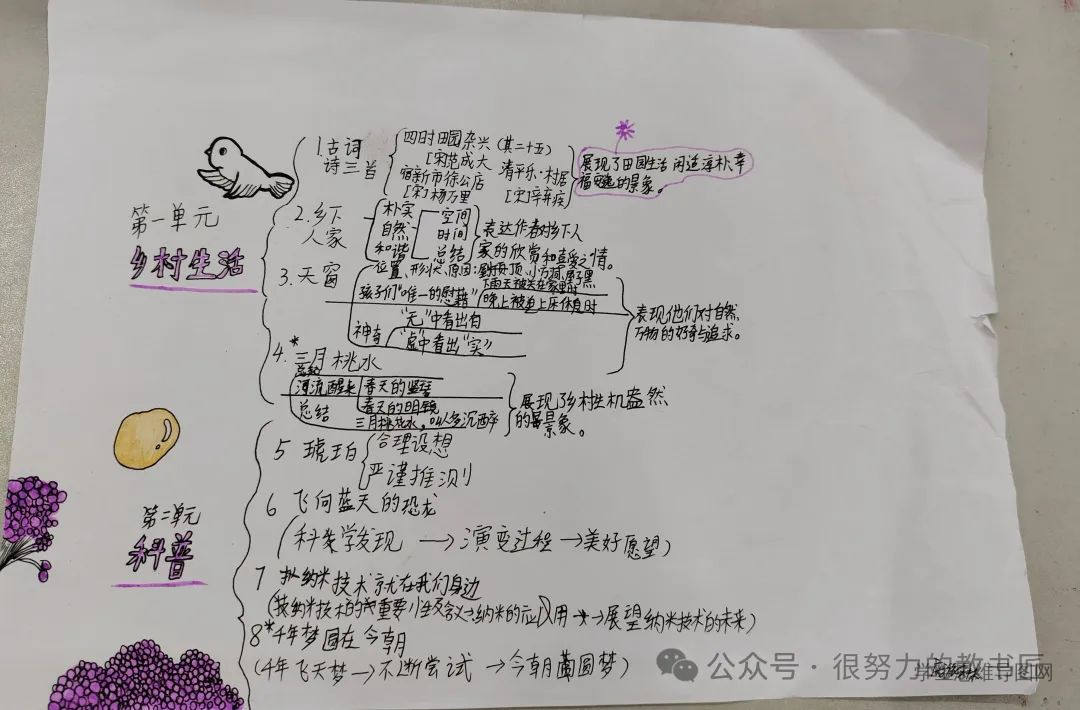 第一单元
乡村生活
1.古词
诗三首
四时田园杂兴(其二十五)
[宋]范成大
宿新市徐公店
[宋]杨万里
清平乐·村居
[宋]辛弃疾
展现了田园生活闲适淳朴幸
福的景象。
2.乡下
人家
朴实
自然
和谐
空间
时间
总结
表达作者对乡下人
家的欣赏和喜爱之情。
3.天窗
位置、形状、原因:
孩子们"唯一的慰藉"
下雨天被关在家里时
晚上被迫上床休息时
神奇
"无"中看出"有"
"虚"中看出"实"
表现他们对自然
万物的好奇与追求。
4.*三月桃水
河流醒来
春天的竖琴
春天的明镜
总结
三月桃花水。叫人多沉醉
展现了乡村生机盎然
的景象。
第二单元
科普
5 琥珀
合理设想
严谨推测
6 飞向蓝天的恐龙
(科学发现→演变过程→美好愿望)
7 纳米技术就在我们身边
用→展望纳米技术的未来)
8*千年梦圆在今朝
(千年飞天梦→不断尝试→今朝圆梦)
公众号·很努力的教书匠
思维导图网